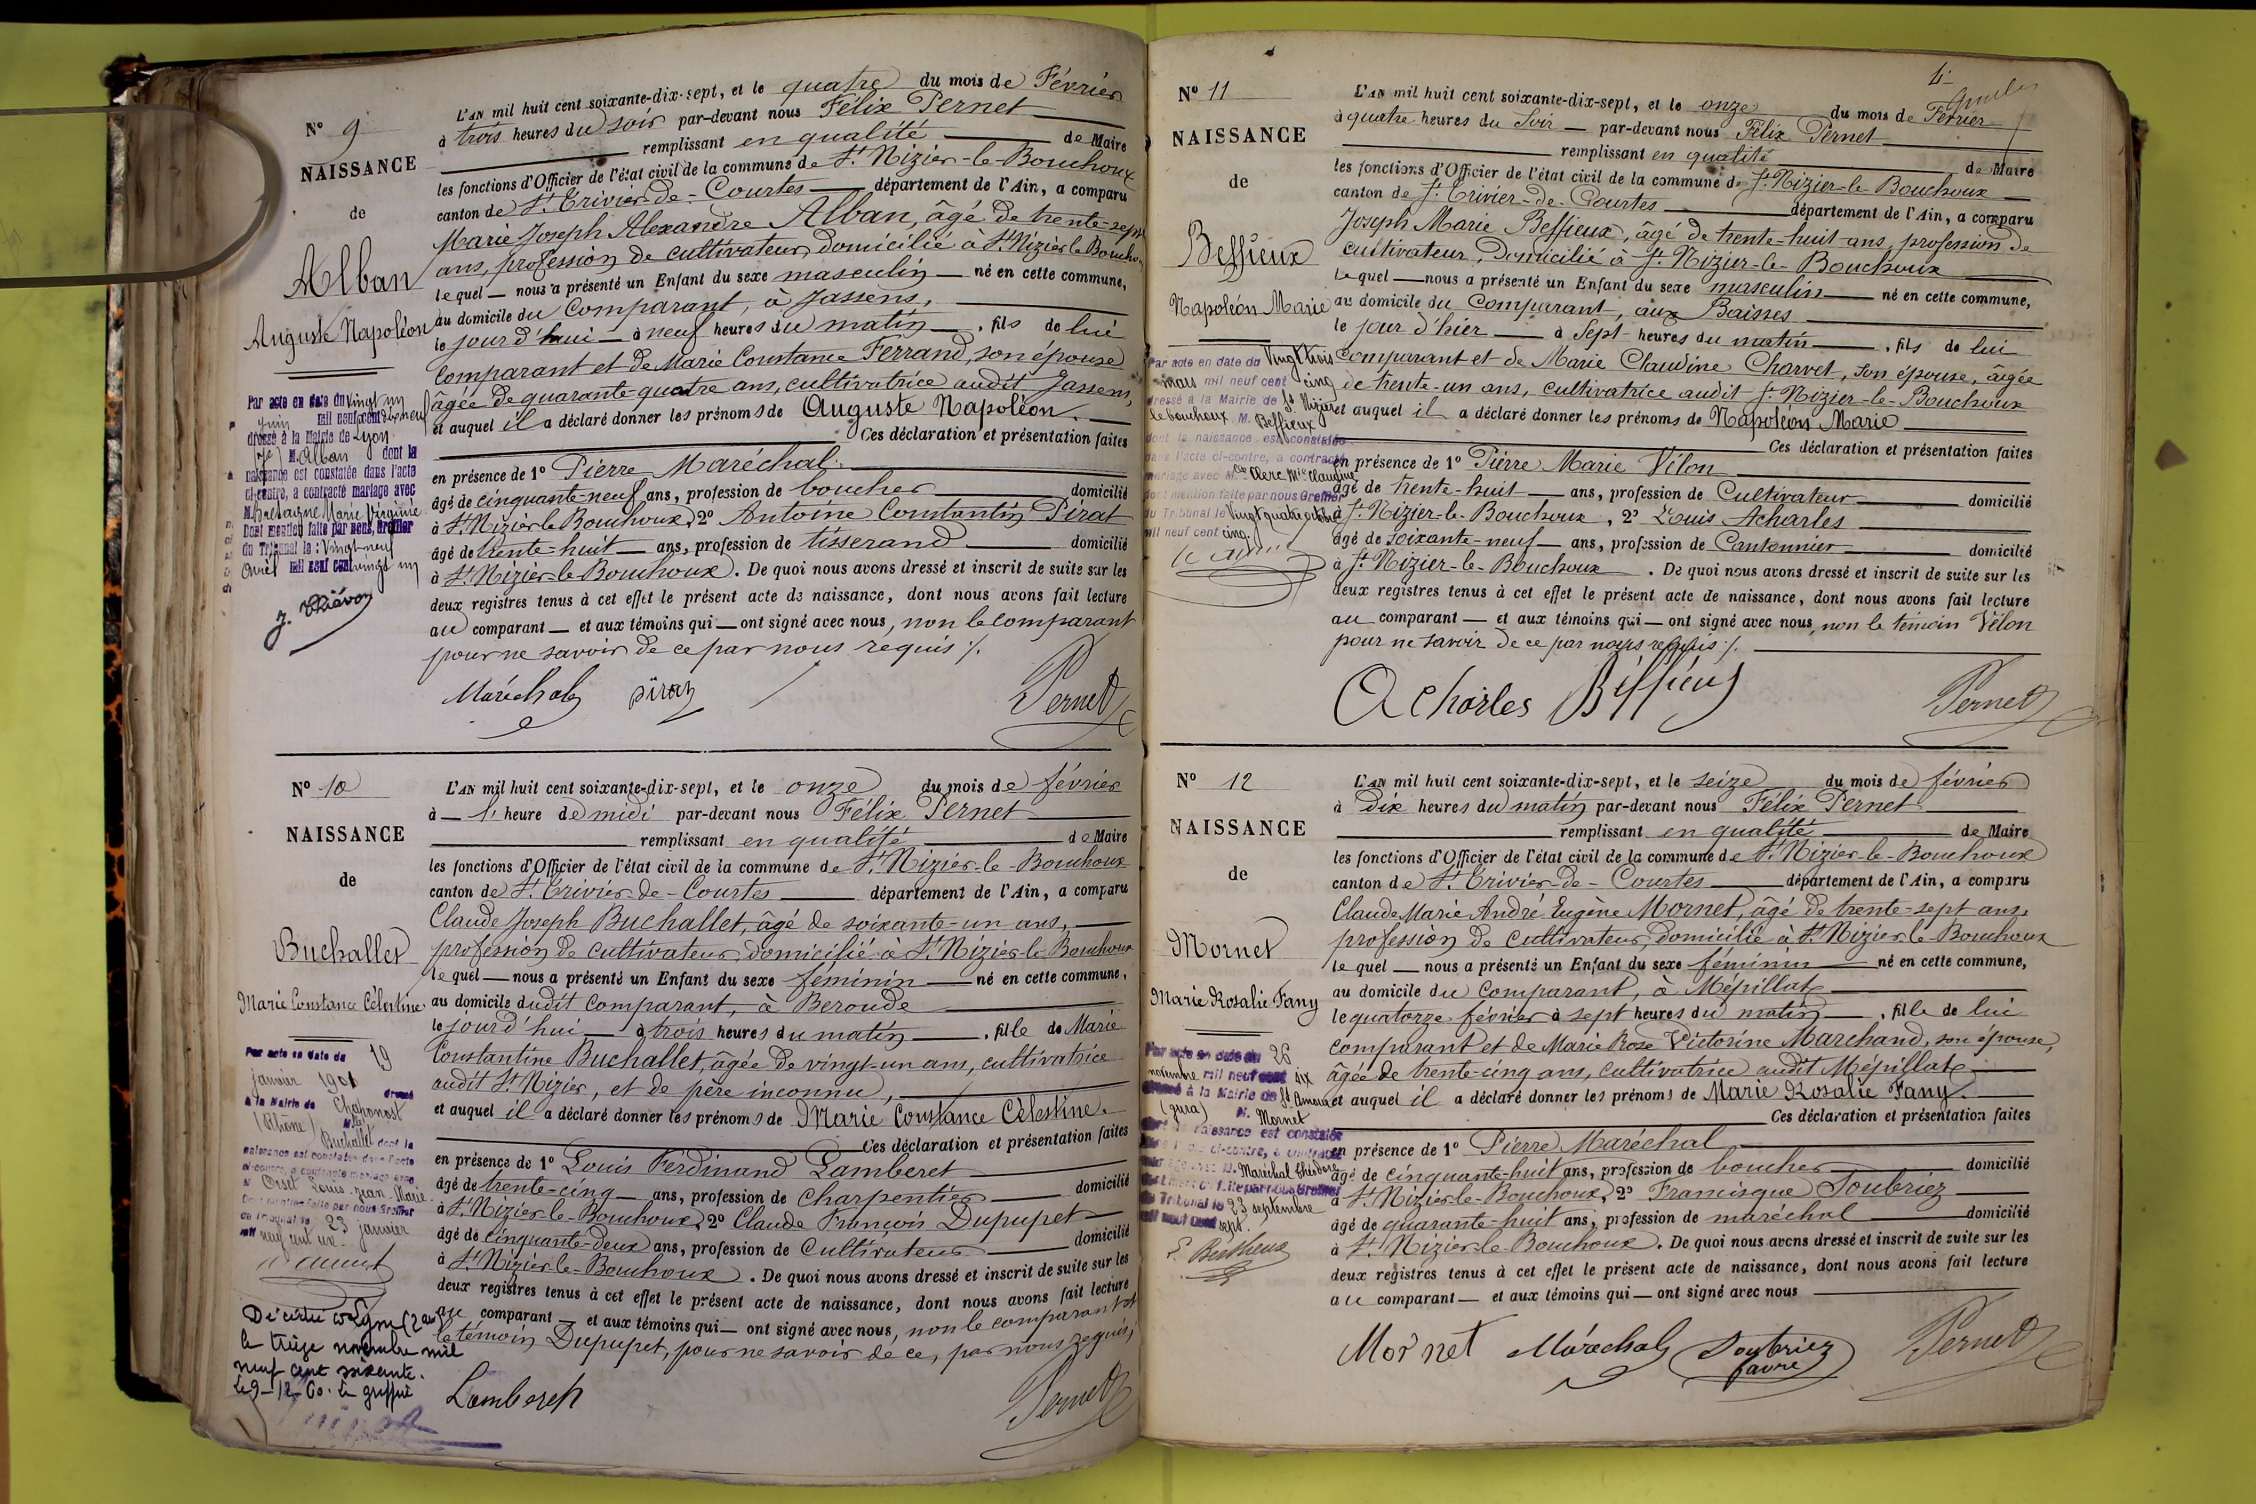 N° 9
NAISSANCE
de
Alban
Auguste Napoléon
Par acte en date du vingt un
juin mil neuf cent dix neuf
dressé à la Mairie de Lyon
(7e) M. Alban dont la
naissance est constatée dans l'acte
ci-contre, a contracté mariage avec
M. Bretagne Marie Virginie
Dont mention faite par nous, Greffier
du Tribunal le : Vingt-neuf
Avril mil neuf cent vingt un
L'AN mil huit cent soixante-dix-sept, et le quatre du mois de Février
à trois heures du soir par-devant nous Félix Pernet
remplissant en qualité de Maire
les fonctions d'Officier de l'état civil de la commune de St Nizier-le-Bouchoux
canton de St Trivier-de-Courtes département de l'Ain, a comparu
Marie Joseph Alexandre Alban, âgé de trente-sept
ans, profession de cultivateur, domicilié à St Nizier le Bouchoux
lequel nous a présenté un Enfant du sexe masculin né en cette commune,
au domicile du comparant, à Jassens,
le jour d'hui à neuf heures du matin, fils de lui
comparant et de Marie Constance Ferrand, son épouse
âgée de quarante-quatre ans, cultivatrice audit Jassens,
et auquel il a déclaré donner les prénoms de Auguste Napoléon
Ces déclaration et présentation faites
en présence de 1° Pierre Maréchal
âgé de cinquante-neuf ans, profession de boucher domicilié
à St Nizier le Bouchoux, 2° Antoine Constantin Pirat
âgé de trente-huit ans, profession de tisserand domicilié
à St Nizier-le-Bouchoux. De quoi nous avons dressé et inscrit de suite sur les
deux registres tenus à cet effet le présent acte de naissance, dont nous avons fait lecture
au comparant et aux témoins qui ont signé avec nous, non le comparant
pour ne savoir de ce par nous requis ./.
Maréchal Pirat Pernet
N° 10
NAISSANCE
de
Buchallet
Marie Constance Célestine
Par acte en date du 19
janvier 1901 dressé
à la Mairie de Chaponost
(Rhône) Mlle
Buchallet dont la
naissance est constatée dans l'acte
ci-contre, a contracté mariage avec
M. Orset Louis Jean Marie
Dont mention faite par nous Greffier
du Tribunal le 23 janvier
mil neuf cent un
Décédée à Lyon (2e)
le treize novembre mil
neuf cent soixante.
Le 9-12-60. Le greffier
L'AN mil huit cent soixante-dix-sept, et le onze du mois de février
à l' heure de midi par-devant nous Félix Pernet
remplissant en qualité de Maire
les fonctions d'Officier de l'état civil de la commune de St Nizier-le-Bouchoux
canton de St Trivier-de-Courtes département de l'Ain, a comparu
Claude Joseph Buchallet, âgé de soixante-un ans,
profession de cultivateur domicilié à St Nizier-le-Bouchoux
lequel nous a présenté un Enfant du sexe féminin né en cette commune,
au domicile dudit comparant, à Beroude
le jour d'hui à trois heures du matin, fille de Marie
Constantine Buchallet, âgée de vingt-un ans, cultivatrice
audit St Nizier, et de père inconnu,
et auquel il a déclaré donner les prénoms de Marie Constance Célestine.
Ces déclaration et présentation faites
en présence de 1° Louis Ferdinand Lamberet
âgé de trente-cinq ans, profession de Charpentier domicilié
à St Nizier-le-Bouchoux, 2° Claude François Dupupet
âgé de cinquante-deux ans, profession de Cultivateur domicilié
à St Nizier-le-Bouchoux. De quoi nous avons dressé et inscrit de suite sur les
deux registres tenus à cet effet le présent acte de naissance, dont nous avons fait lecture
au comparant et aux témoins qui ont signé avec nous, non le comparant et
le témoin Dupupet, pour ne savoir de ce, par nous requis,
Lamberet Pernet
4
N° 11
NAISSANCE
de
Beffieux
Napoléon Marie
Par acte en date du Vingt trois
mars mil neuf cent cinq
dressé à la Mairie de St Nizier
le bouchoux M. Beffieux
dont la naissance est constatée
dans l'acte ci-contre, a contracté
mariage avec Clerc Mie Claudine
dont mention faite par nous Greffier
du Tribunal le Vingt quatre octobre
mil neuf cent cinq.
L'AN mil huit cent soixante-dix-sept, et le onze du mois de Février
à quatre heures du Soir par-devant nous Félix Pernet
remplissant en qualité de Maire
les fonctions d'Officier de l'état civil de la commune de St Nizier-le-Bouchoux
canton de St Trivier-de-Courtes département de l'Ain, a comparu
Joseph Marie Beffieux, âgé de trente-huit ans, profession de
cultivateur, Domicilié à St Nizier-le-Bouchoux
lequel nous a présenté un Enfant du sexe masculin né en cette commune,
au domicile du Comparant, aux Baisses
le jour d'hier à Sept heures du matin, fils de lui
comparant et de Marie Claudine Charvet, son épouse, âgée
de trente-un ans, cultivatrice audit St Nizier-le-Bouchoux
et auquel il a déclaré donner les prénoms de Napoléon Marie
Ces déclaration et présentation faites
en présence de 1° Pierre Marie Vélon
âgé de trente-huit ans, profession de Cultivateur domicilié
à St Nizier-le-Bouchoux, 2° Louis Acharles
âgé de soixante-neuf ans, profession de Cantonnier domicilié
à St Nizier-le-Bouchoux. De quoi nous avons dressé et inscrit de suite sur les
deux registres tenus à cet effet le présent acte de naissance, dont nous avons fait lecture
au comparant et aux témoins qui ont signé avec nous, non le témoin Vélon
pour ne savoir de ce par nous requis ./.
Acharles Béffieux Pernet
N° 12
NAISSANCE
de
Mornet
Marie Rosalie Fany
Par acte en date du 26
novembre mil neuf cent six
dressé à la Mairie de St Amour
(Jura) M. Mornet
dont la naissance est constatée
dans l'acte ci-contre, a contracté
mariage avec M. Maréchal Théodore
Dont mention faite par nous Greffier
du Tribunal le 23 septembre
mil neuf cent sept.
L'AN mil huit cent soixante-dix-sept, et le seize du mois de février
à Dix heures du matin par-devant nous Félix Pernet
remplissant en qualité de Maire
les fonctions d'Officier de l'état civil de la commune de St Nizier-le-Bouchoux
canton de St Trivier-de-Courtes département de l'Ain, a comparu
Claude Marie André Eugène Mornet, âgé de trente-sept ans,
profession de cultivateur, domicilié à St Nizier-le-Bouchoux
lequel nous a présenté un Enfant du sexe féminin né en cette commune,
au domicile du Comparant, à Mépillat
le quatorze février à sept heures du matin, fille de lui
comparant et de Marie Rose Victorine Marchand, son épouse,
âgée de trente-cinq ans, cultivatrice audit Mépillat
et auquel il a déclaré donner les prénoms de Marie Rosalie Fany.
Ces déclaration et présentation faites
en présence de 1° Pierre Maréchal
âgé de cinquante-huit ans, profession de boucher domicilié
à St Nizier-le-Bouchoux, 2° Francisque Soubriez
âgé de quarante-huit ans, profession de maréchal domicilié
à St Nizier-le-Bouchoux. De quoi nous avons dressé et inscrit de suite sur les
deux registres tenus à cet effet le présent acte de naissance, dont nous avons fait lecture
au comparant et aux témoins qui ont signé avec nous
Mornet Maréchal Soubriez Pernet
favre